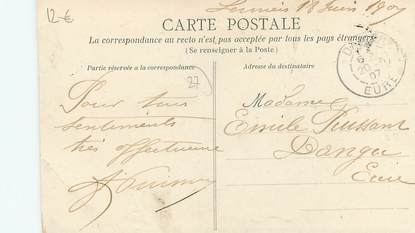 12-€
18 Juin 1907
CARTE POSTALE
La correspondance au recto n'est pas acceptée par tous les pays étrangers
(Se renseigner à la Poste)
Partie réservée à la correspondance
Adresse du destinataire
27
Pour tous
sentiments
très affectueux
Madame
Emile
Dangu
Eure
20
07
EURE